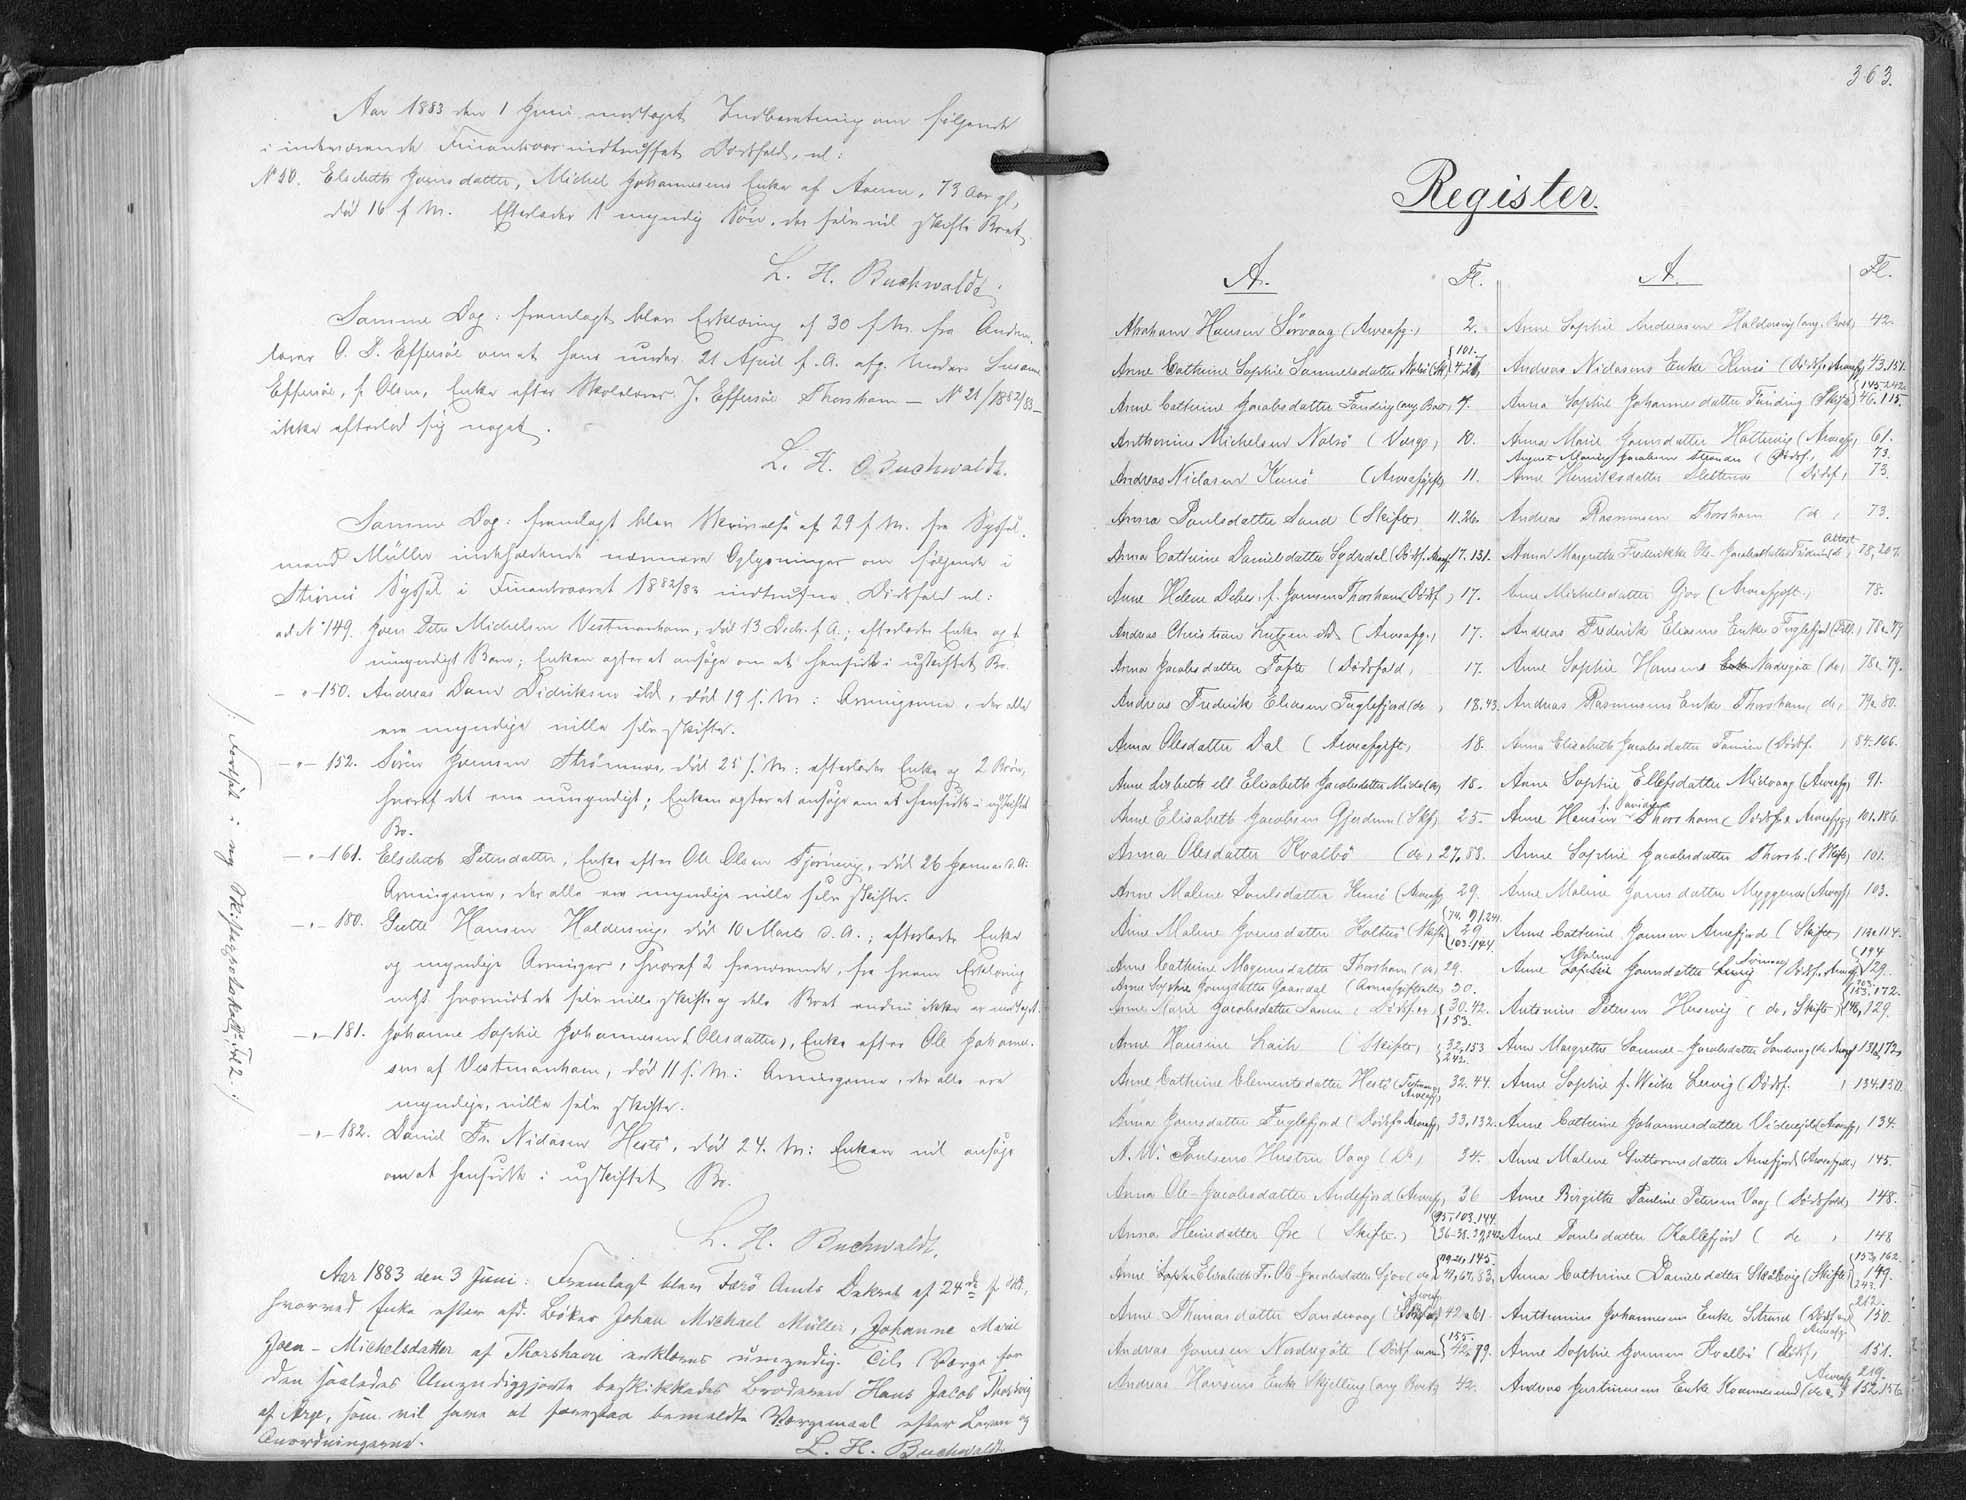 Aar 1883 den 1 Juni modtaget Indberetning om følgende
i indeværende Finantsaar indtruffet Dødsfald, nl:
No 50. Elsebeth Joensdatter, Michel Johannesens Enke af Averne, 73 Aar gl,
død 16 f. M. Efterlader 1 myndig Søn, der selv vil skifte Boet.
L. H. Buchwaldt.
Samme Dag: fremlagt blev Erklæring af 30 f. M. fra Andens-
lærer O. P. Effersøe om at hans under 21 April f. A. afg. Moder Susanne
Effersøe, f. Olsen, Enke efter Skolelærer J. Effersøe Thorshavn – No 21/1882/83 –
ikke efterlod sig noget.
L. H. Buchwaldt.
Samme Dag: fremlagt blev Skrivelse af 29 f. M. fra Syssel-
mand Müller indeholdende nærmere Oplysninger om følgende i
Strømø Syssel i Finantsaaret 1882/83 indtrufne Dødsfald nl:
ad No 149. Joen Peter Michelsen Vestmanhavn, død 13 Decb. f. A.; efterlader Enke og 1
umyndigt Barn; Enken agter at ansøge om at hensidde i uskiftet Bo.
– " – 150. Andreas Dam Didriksen ibd, død 19 f. M: Arvingerne, der alle
ere myndige ville selv skifte.
– " – 152. Sören Joensen Strömnæs, død 25 f. M: efterlader Enke og 2 Börn,
hvoraf det ene umyndigt; Enken agter at ansøge om at hensidde i uskiftet
Bo.
– " – 161. Elsebeth Petersdatter, Enke efter Ole Olsen Tjørnevig, død 26 Januar d. A:
Arvingerne, der alle ere myndige ville selv skifte.
– " – 180. Gutte Hansen Haldersvig, død 10 Marts d. A.; efterlader Enke
og myndige Arvinger, hvoraf 2 fraværende, fra hvem Erklæring
mht. hvorvidt de selv ville skifte og dele Boet endnu ikke er modtaget.
– " – 181. Johanne Sophie Johannesen (Olesdatter), Enke efter Ole Johanne-
sen af Vestmanhavn, død 11 f. M: Arvingerne, der alle ere
myndige, ville selv skifte.
– " – 182. Daniel Fr. Niclasen Hestö, død 24. M: Enken vil ansøge
om at hensidde i uskiftet Bo.
L. H. Buchwaldt.
Aar 1883 den 3 Juni: Fremlagt blev Færö Amts Dekret af 24de f. Md.,
hvorved Enke efter afd. Bøker Johan Michael Müller, Johanne Marie
Joen-Michelsdatter af Thorshavn erklæres umyndig. Til Værge for
den saaledes Umyndiggjorte beskikkedes Broderen Hans Jacob Thorsvig
af Arge, som vil have at forestaa bemeldte Værgemaal efter Loven og
Anordningerne.
L. H. Buchwaldt
/: Fortsat i ny Skifteprotokol 1.2. :/
363.
Register.
A. Fl.
Abraham Hansen Sörvaag (Arveafg.) 2.
Anne Cathrine Sophie Samuelsdatter Nolsö (Sk) 4.26. {101.
Anne Cathrine Jacobsdatter Funding (ang Boet) 7.
Anthonius Michelsen Nolsö (Værge) 10.
Andreas Niclasen Kunö (Arveafgift) 11.
Anna Poulsdatter Sand (Skifte) 11.26.
Anna Cathrine Danielsdatter Sydredal (Dödsf. Arveaf) 17.131.
Anne Helene Debes, f. Joensen Thorshavn (Dödsf.) 17.
Andreas Christian Lutzen ibd (Arveafg.) 17.
Anna Jacobsdatter Tofte (Dödsfald) 17.
Andreas Frederik Eliasen Fuglefjord (do) 18.43.
Anna Olesdatter Dal (Arveafgift) 18.
Anne Lisbeth ell. Elisabeth Jacobsdatter Midv. (do) 18.
Anne Elisabeth Jacobsen Gjerdum (Skf) 25.
Anna Olesdatter Hvalbö (do) 27.88.
Anne Malene Poulsdatter Kunö (Arveafg) 29.
Anne Malene Joensdatter Holtsö (Skifte) {74. 91.241. 29. 103.144.
Anne Cathrine Mogensdatter Thorshavn (do) 29.
Anne Sophie Joensdatter Gaasdal (Arveafgift) 30.
Anne Marie Jacobsdatter Lamin (Dödsf.) {30.42. 153.
Anne Hansine Laih (Skifte) {32,153 242.
Anne Cathrine Clementsdatter Hestö (Arveafg) 32.44.
Anna Joensdatter Fuglefjord (Dödsf. Arveafg) 33,132.
A. W. Poulsens Hustru Vaag (do) 34.
Anna Ole-Jacobsdatter Andefjord (Arveafg) 36
Anna Heinesdatter Öre (Skifte) {95.103.144. 36.38.39,242
Anne Sophie Elisabeth Fr. Ole-Jacobsdatter Gjov (do) 41,67,83, 145.
Anne Thomasdatter Sandevaag (Skifte) 42.61.
Andreas Joensen Nordregöte (Dödsf.) {155. 42.79.
Andreas Hansens Enke Skjelling (ang Boet) 42.
A. Fl.
Anne Sophie Andreasen Haldersvig (ang. Boet) 42.
Andreas Niclasens Enke Kunö (Dödsf. Arveafg) 43.151.
Anna Sophie Johannesdatter Funding (Skifte) {145.242. 46.115.
Anna Marie Joensdatter Hattervig (Arveafg) 61.
August Maurus Jacobsen Strender (Dödsf.) 73.
Anne Henriksdatter Slettenæs (Dödsf.) 73.
Andreas Rasmussen Thorshavn (do) 73.
Anna Margrethe Frederikke Ole-Jacobsdatter Funding (do) 78,207. Attest
Anne Michelsdatter Gjov (Arveafgift) 78.
Andreas Frederik Eliasens Enke Fuglefjord (Dödsf.) 78.79
Anne Sophie Hansens Nordregöte (do) 78.79.
Andreas Rasmussens Enke Thorshavn (do) 79.80.
Anna Elisabeth Jacobsdatter Famien (Dödsf.) 84.166.
Anne Sophie Ellefsdatter Midvaag (Arveafg) 91.
Anne Hansen f. Davidsen Thorshavn (Dödsf. Arveafg) 101.186.
Anne Sophie Jacobsdatter Thorsh. (Skifte) 101.
Anne Malene Joensdatter Myggenæs (Arveaf) 103.
Anne Cathrine Joensen Arnefjord (Skifte) 113.114.
Anne Malene Joensdatter (Dödsf. Arveaf) {194 129.
Antonius Petersen Husevig (do, Skifte) {153.172. 148, 129.
Anne Margrethe Samuel-Jacobsdatter Sandevaag (do Arveaf) 131.172
Anne Sophie f. Weihe Lervig (Dödsf.) 134.150.
Anne Cathrine Johannesdatter Videreide (Arveafg) 134.
Anne Malene Guttormsdatter Arnefjord (Arveafgift) 145.
Anne Birgitte Pauline Petersen Vaag (Dödsfald) 148.
Anne Poulsdatter Kollefjord (do) 148
Anna Cathrine Danielsdatter Skaalevig (Skifte) {153,162. 149. 243.
Anthonius Johannesens Enke Strand (Dödsf. Arveafg.) {212. 150.
Anne Sophie Joensen Hvalbö (Dödsf.) 151.
Andreas Justinusens Enke Kvannesund (do) 152.156. Arveafg 219.